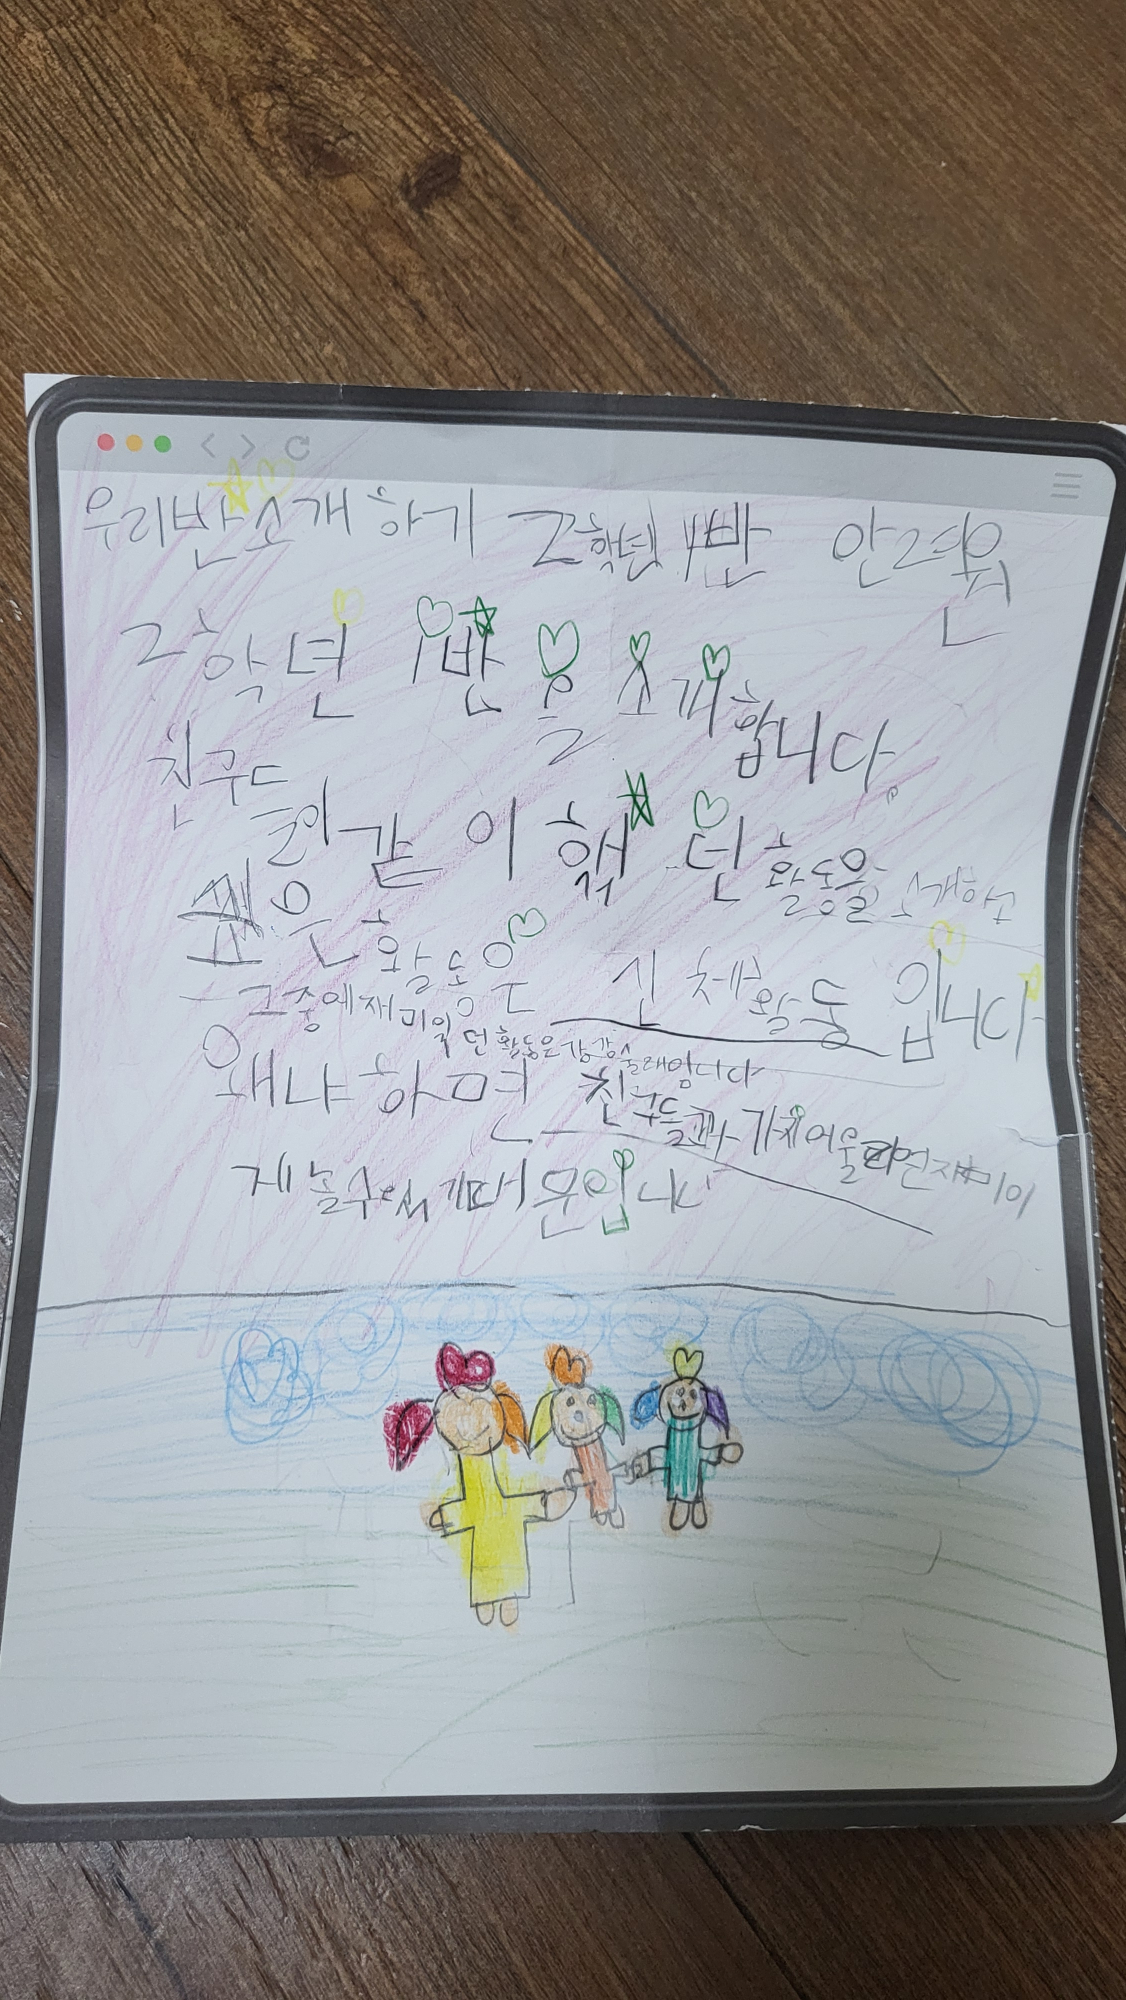 우리반소개 하기 2학년 1반
2학년 1반 을 소개합니다.
친구들과 같이 했던 활동을 소개하고
싶은 활동은 신체활동 입니다
그중에 재미있던 활동은 강강술래입니다
왜냐하면 친구들과 가치어울리면
놀수 때문입니다